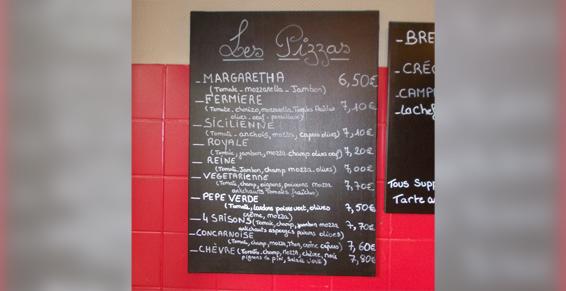 Les Pizzas
_ MARGARETHA 6,50€
(Tomate - mozzarella - Jambon)
_ FERMIERE 7,10€
(Tomate - chorizo, mozzarella
olives - oeuf -
_ SICILIENNE
(Tomate - anchois, mozza, capres olives) 7,10€
_ ROYALE
(Tomate, jambon, mozza champ olives oeuf) 7,20€
_ REINE
(Tomate, Jambon, champ mozza olives) 7,00€
_ VEGETARIENNE
(Tomate, champ, oignons, poivrons mozza 7,70€
artichauts Tomates fraiche)
_ PEPE VERDE
(Tomate, lardons poivre vert, olives 7,50€
crème, mozza)
_ 4 SAISONS (Tomate, champ, jambon mozza 7,70€
artichauts asperges poivrons olives)
_ CONCARNOISE
(Tomate, champ, mozza, Thon, crème capres) 7,60€
_ CHÈVRE (Tomate, champ, mozza, chèvre, noix 7,80€
pignons de pin,
_ BRE
_ CRÉO
_ CAMP
_ La Chef
Tous Supp
Tarte a